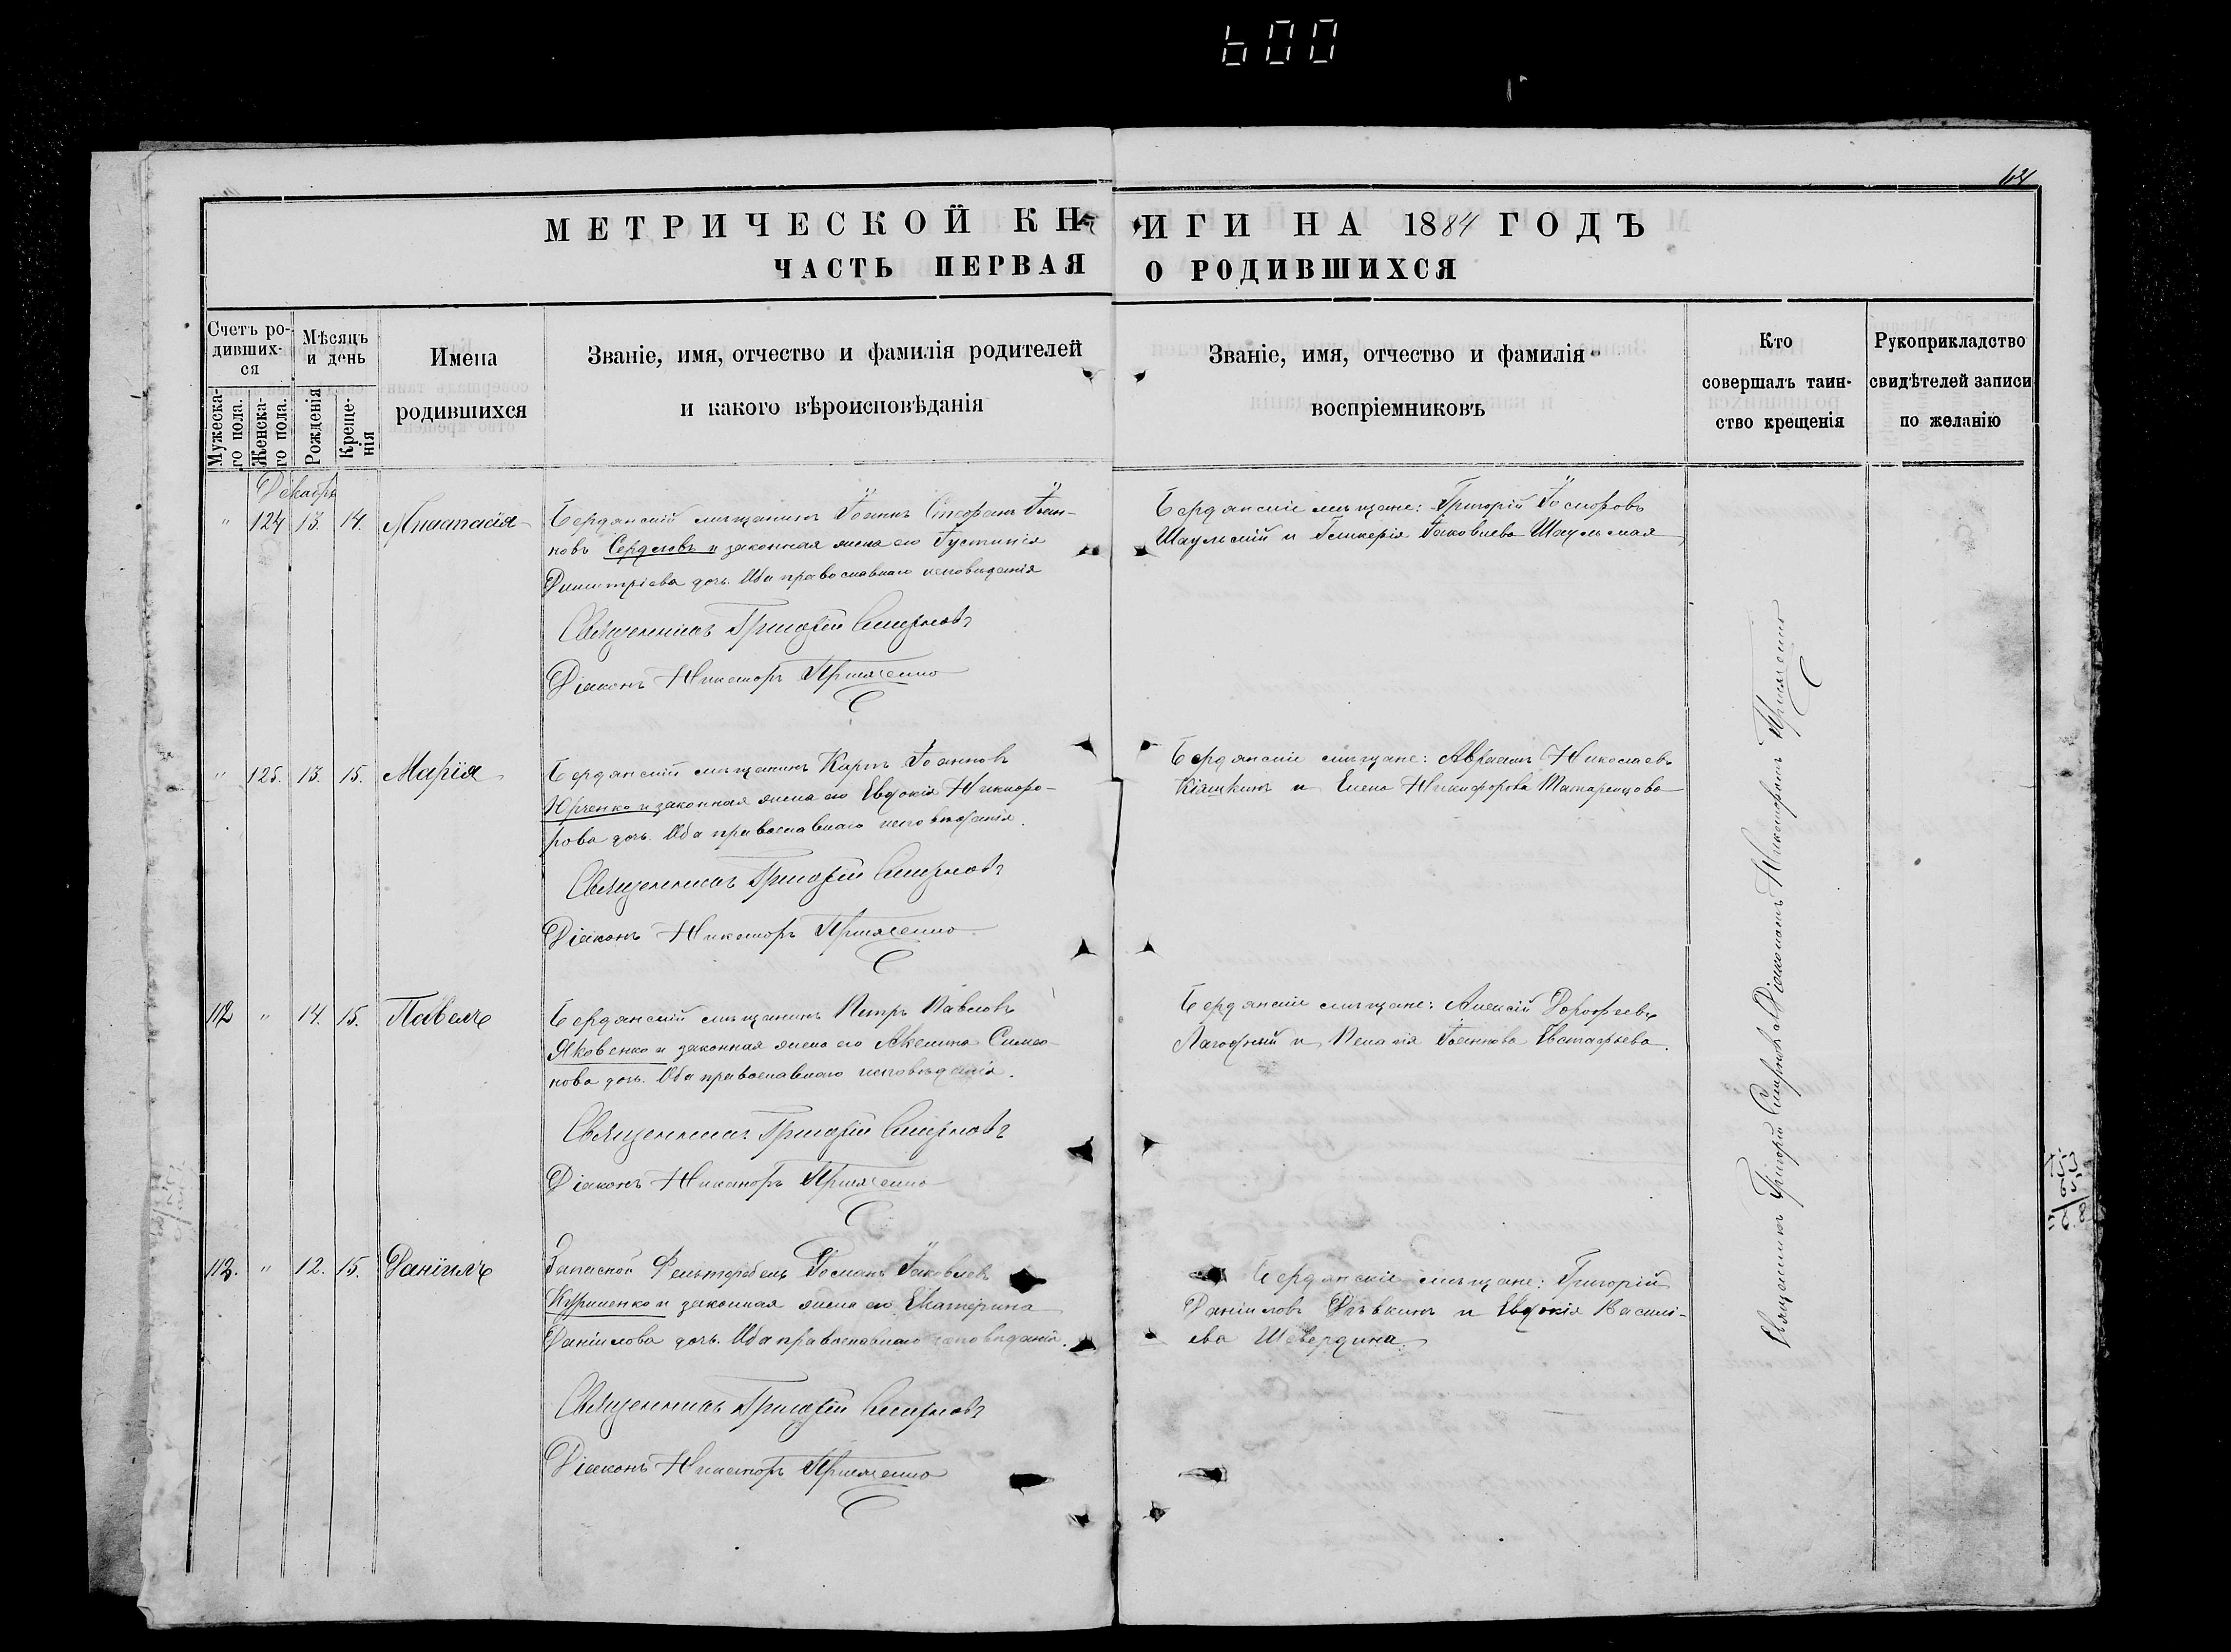 600
64
МЕТРИЧЕСКОЙ КНИГИ НА 1884 ГОДЪ
ЧАСТЬ ПЕРВАЯ О РОДИВШИХСЯ
Счетъ ро-
дивших-
ся
Мужеска-
го пола.
Женска-
го пола.
Мѣсяцъ
и день
Рожденія
Креще-
нія
Имена
родившихся
Званіе, имя, отчество и фамилія родителей
и какого вѣроисповѣданія
Званіе, имя, отчество и фамилія
воспріемниковъ
Кто
совершалъ таин-
ство крещенія
Рукоприкладство
свидѣтелей записи
по желанію
Декабря
" 124 13. 14. Анастасія
Бердянскій мѣщанинъ Іоаннъ Стефанъ Іоан-
новъ Сердюковъ и законная жена его Іустинія
Димитріева дочь. Оба православнаго исповѣданія
Священникъ Григорій Смирновъ
Діаконъ Никаноръ
Бердянскіе мѣщане: Григорій
Шаульскій и Гликерія Іаковлева Шаульская
" 125. 13. 15. Марія
Бердянскій мѣщанинъ Карпъ Іоанновъ
Юрченко и законная жена его Евдокія Никифо-
рова дочь. Оба православнаго исповѣданія.
Священникъ Григорій Смирновъ
Діаконъ Никаноръ
Бердянскіе мѣщане: Авраамъ Николаевъ
Кіяшкинъ и Елена Никифорова Татаренцова
112 " 14. 15. Павелъ
Бердянскій мѣщанинъ Петръ Павловъ
Яковенко и законная жена его Акелина Симео-
нова дочь. Оба православнаго исповѣданія.
Священникъ Григорій Смирновъ
Діаконъ Никаноръ
Бердянскіе мѣщане: Алексій Дорофеевъ
Лагодный и Пелагія Іоаннова Евстафьева.
113. " 12. 15. Даніилъ
Запасной Фельдфебель Романъ Іаковлевъ
Куриленко и законная жена его Екатерина
Даніилова дочь. Оба православнаго исповѣданія.
Священникъ Григорій Смирновъ
Діаконъ Никаноръ
Бердянскіе мѣщане: Григорій
Даніиловъ и Евдокія Васили-
ева Шевердина.
Священникъ Григорій Смирновъ Діакономъ Никаноромъ